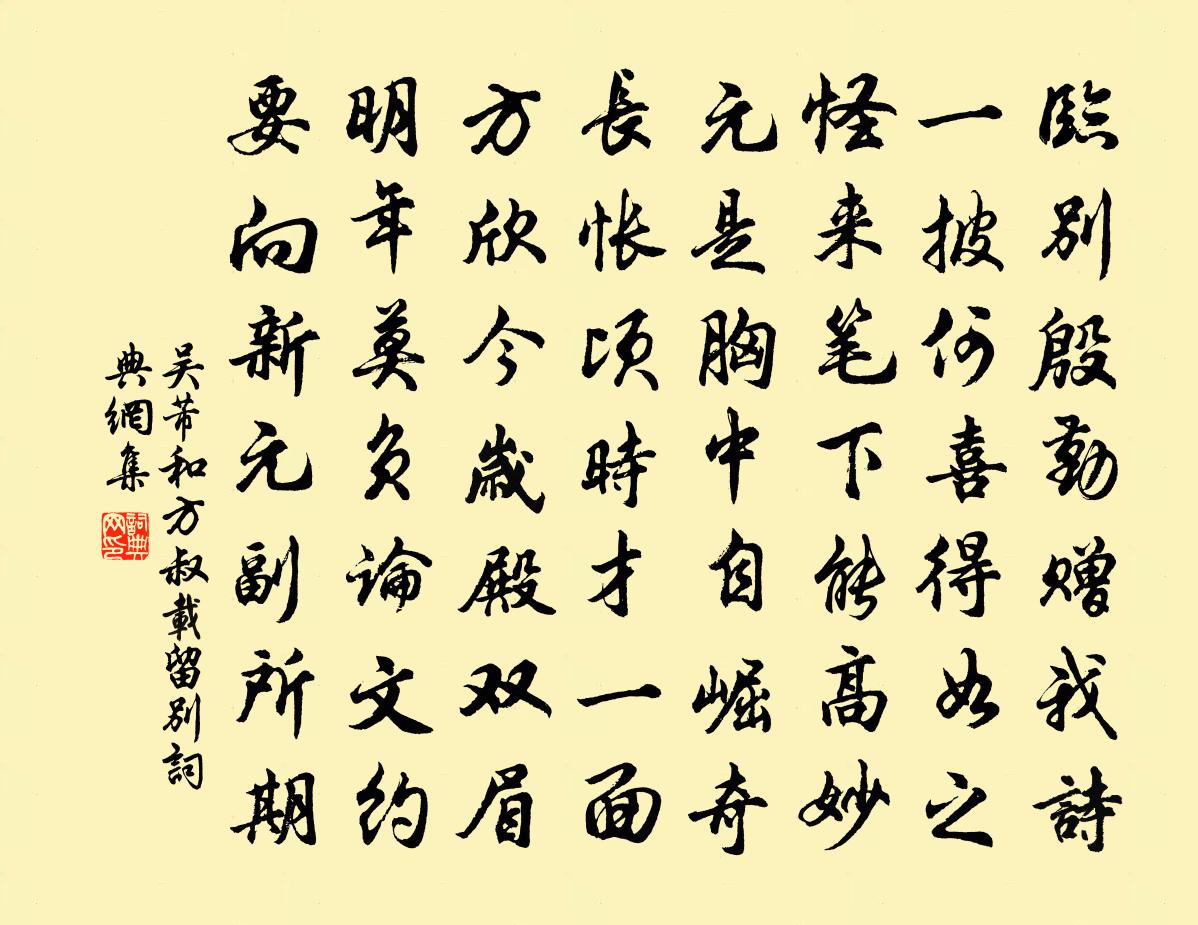 臨别殷勤赠我詩
一披何喜得如之
怪来笔下能高妙
元是胸中自崛奇
長怅頃時才一面
方欣今歳殿双眉
明年莫负論文約
要向新元副所期
吴芾和方叔載留别詞
典網集
詞典网印